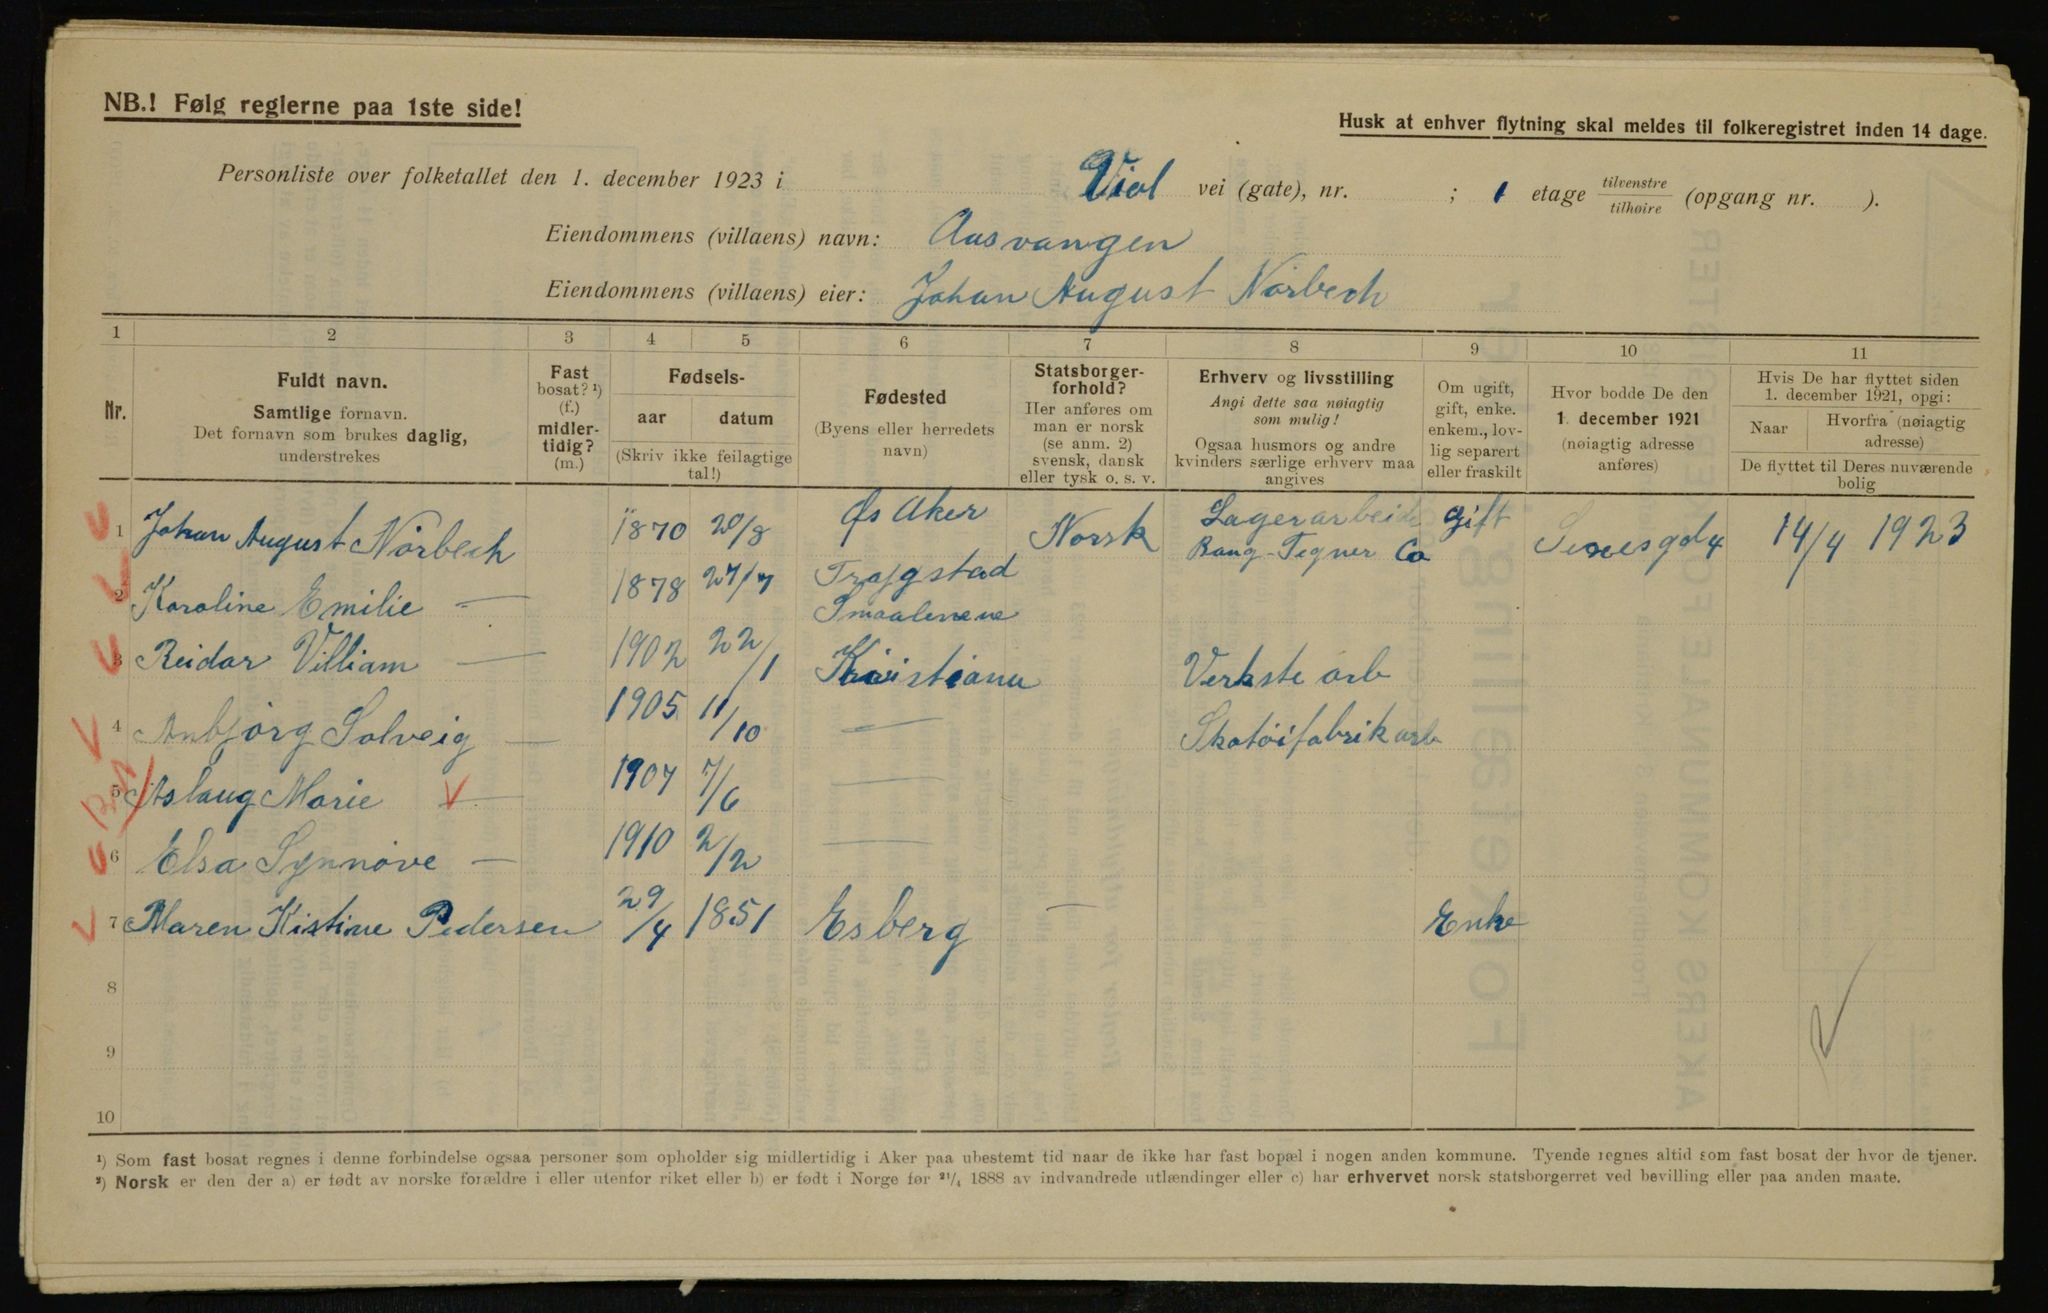 NB.! Følg reglerne paa 1ste side!
Husk at enhver flytning skal meldes til folkeregistret inden 14 dage.
Personliste over folketallet den 1. december 1923 i Viol vei (gate), nr. ; 1 etage tilvenstre / tilhøire (opgang nr. ).
Eiendommens (villaens) navn: Aasvangen
Eiendommens (villaens) eier: Johan August Nørbech
1 2 3 4 5 6 7 8 9 10 11
Nr.
Fuldt navn.
Samtlige fornavn.
Det fornavn som brukes daglig,
understrekes
Fast
bosat? ¹)
(f.)
midler-
tidig?
(m.)
Fødsels-
aar datum
(Skriv ikke feilagtige
tal!)
Fødested
(Byens eller herredets
navn)
Statsborger-
forhold?
Her anføres om
man er norsk
(se anm. 2)
svensk, dansk
eller tysk o. s. v.
Erhverv og livsstilling
Angi dette saa nøiagtig
som mulig!
Ogsaa husmors og andre
kvinders særlige erhverv maa
angives
Om ugift,
gift, enke.
enkem., lov-
lig separert
eller fraskilt
Hvor bodde De den
1. december 1921
(nøiagtig adresse
anføres)
Hvis De har flyttet siden
1. december 1921, opgi:
Naar Hvorfra (nøiagtig
adresse)
De flyttet til Deres nuværende
bolig
1 Johan August Nørbech 1870 20/8 Øs Aker Norsk Lagerarbeid gift 14/4 1923
Bang-Tegner Co
2 Karoline Emilie — 1878 27/7 Trøgstad
Smaalenene
3 Reidar Villiam — 1902 22/1 Kristiania Verkste arb
4 Anbjørg Solveig — 1905 11/10 — Skotøifabrik arb
5 Aslaug Marie — 1907 7/6 —
6 Elsa Synnøve — 1910 2/2 —
7 Maren Kistine Pedersen 29/4 1851 Esberg — Enke
8
9
10
¹) Som fast bosat regnes i denne forbindelse ogsaa personer som opholder sig midlertidig i Aker paa ubestemt tid naar de ikke har fast bopæl i nogen anden kommune. Tyende regnes altid som fast bosat der hvor de tjener.
²) Norsk er den der a) er født av norske forældre i eller utenfor riket eller b) er født i Norge før ²¹/₄ 1888 av indvandrede utlændinger eller c) har erhvervet norsk statsborgerret ved bevilling eller paa anden maate.